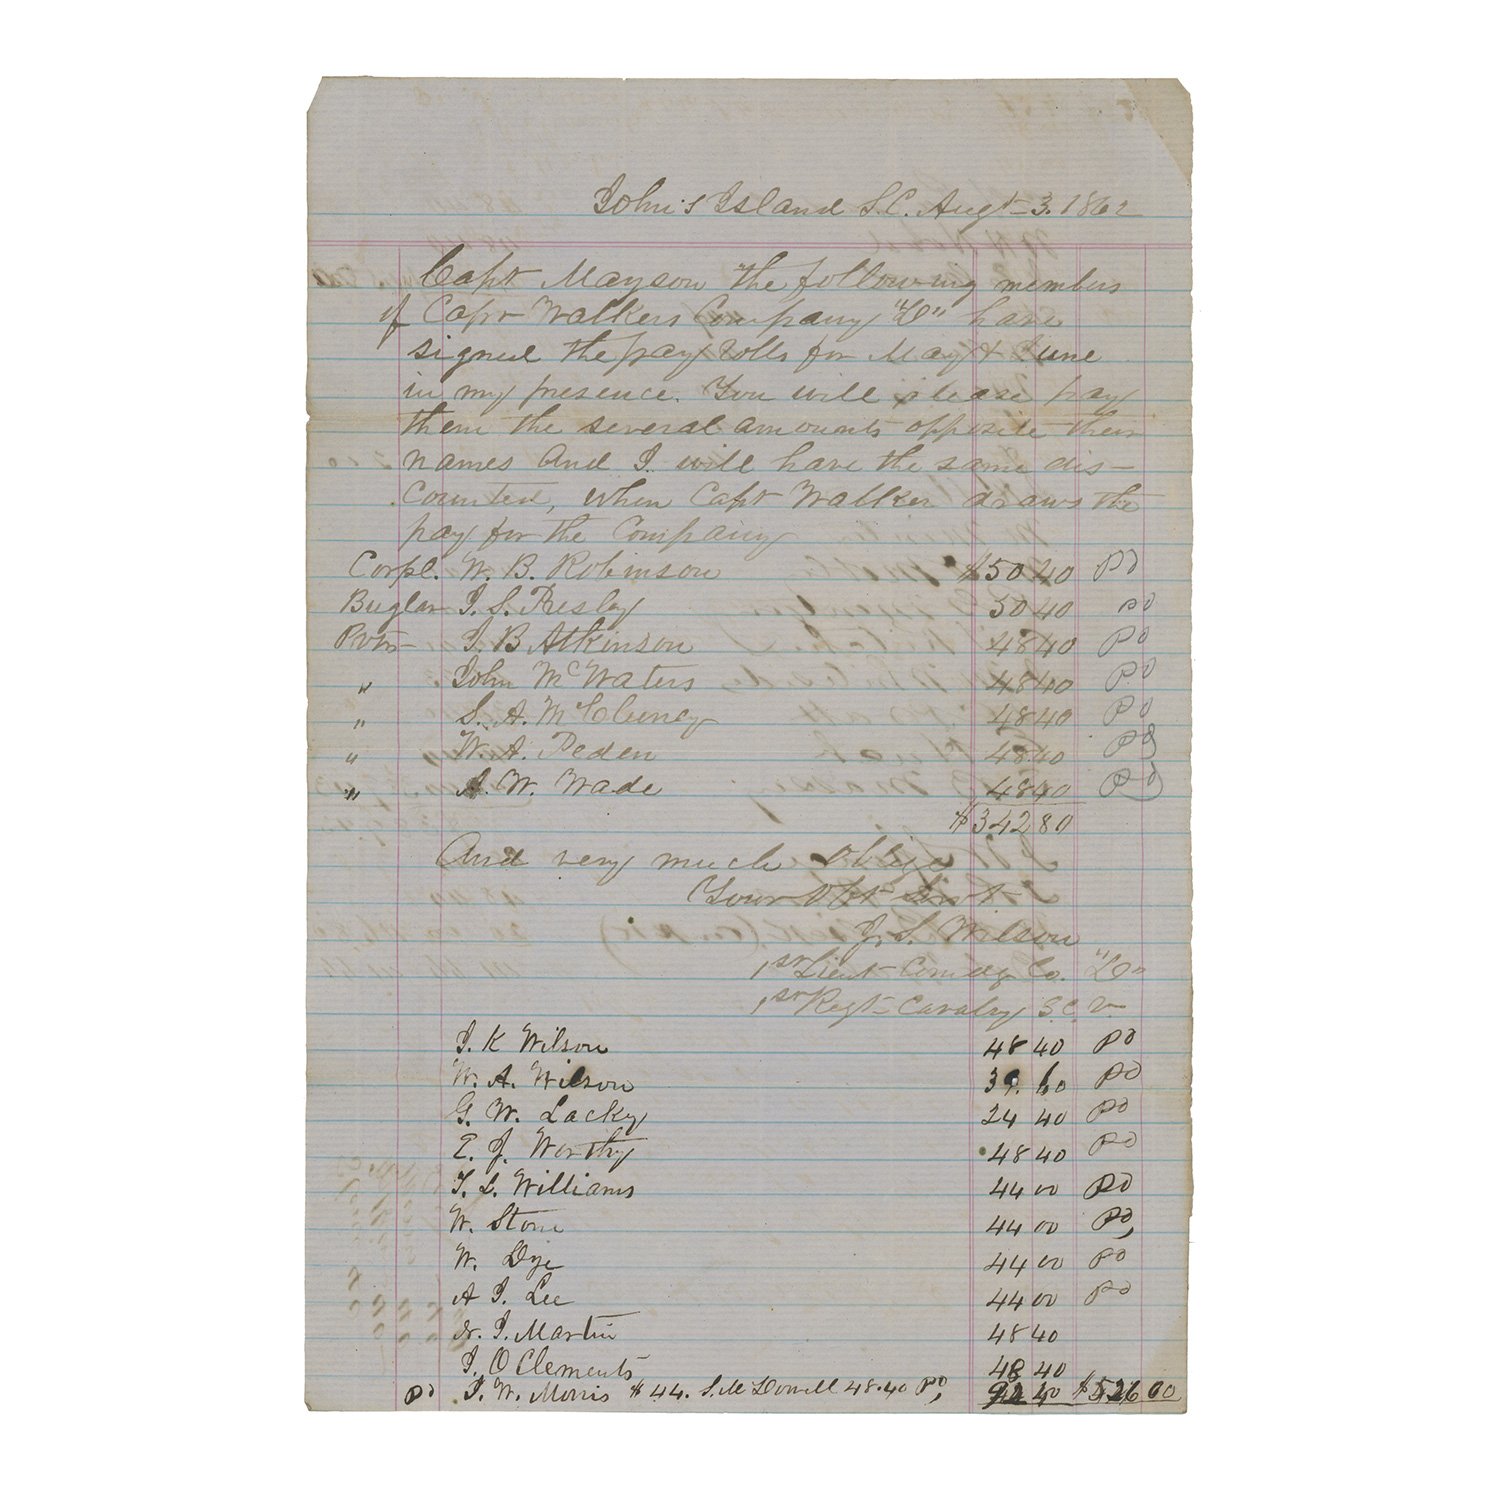 John's Island S.C. Augt 3. 1862
Capt Mayson the following members
of Capt Walkers Company "D" have
signed the pay rolls for May & June
in my presence. You will please pay
them the several amounts opposite their
names And I will have the same dis-
counted, when Capt Walker draws the
pay for the Company
Corpl. W. B. Robinson $50 40 Pd
Buglar J. S. Presley 50 40 Pd
Pvts J. B Atkinson 48 40 Pd
" John McWaters 48 40 Pd
" S. A. McCluney 48 40 Pd
" W. A. Peden 48.40 Pd
" A. W. Wade 48 40 Pd
$342 80
And very much oblige
Your Obt Servt
J. S. Wilson
1st Lieut Comdg Co. "D"
1st Regt Cavalry S.C.V.
J. K Wilson 48 40 Pd
W. A. Wilson 39. 60 Pd
G. W. Lacky 24 40 Pd
E. J. Worthy 48 40 Pd
T. L. Williams 44 00 Pd
W. Stone 44 00 Pd,
W. Dye 44 00 Pd
A J. Lee 44 00 Pd
J. Martin 48 40
J. O Clements 48 40
Pd J. W. Morris $44. S. McDowell 48.40 Pd, 92 40 $526 00